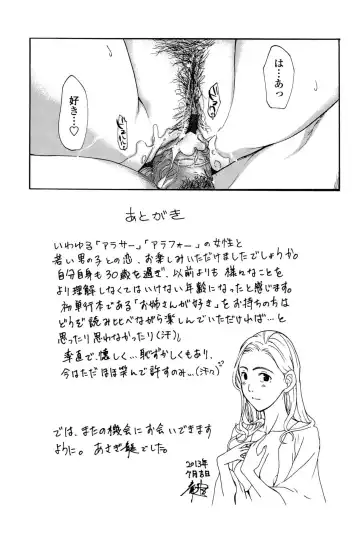 は…あっ
好き…♡
あとがき
いわゆる「アラサー」「アラフォー」の女性と
若い男の子との恋、お楽しみいただけましたでしょうか。
自分自身も30歳を過ぎ、以前よりも様々なことを
より理解しなくてはいけない年齢になったと感じます。
初単行本である「お姉さんが好き」をお持ちの方は
どうぞ読み比べながら楽しんでいただければ…と
思ったり思わなかったり(汗)。
率直で、懐しく…恥ずかしくもあり、
今はただほほ笑んで許すのみ…(汗々)
では、またの機会にお会いできます
ように。あさぎ龍でした。
2013年
7月吉日